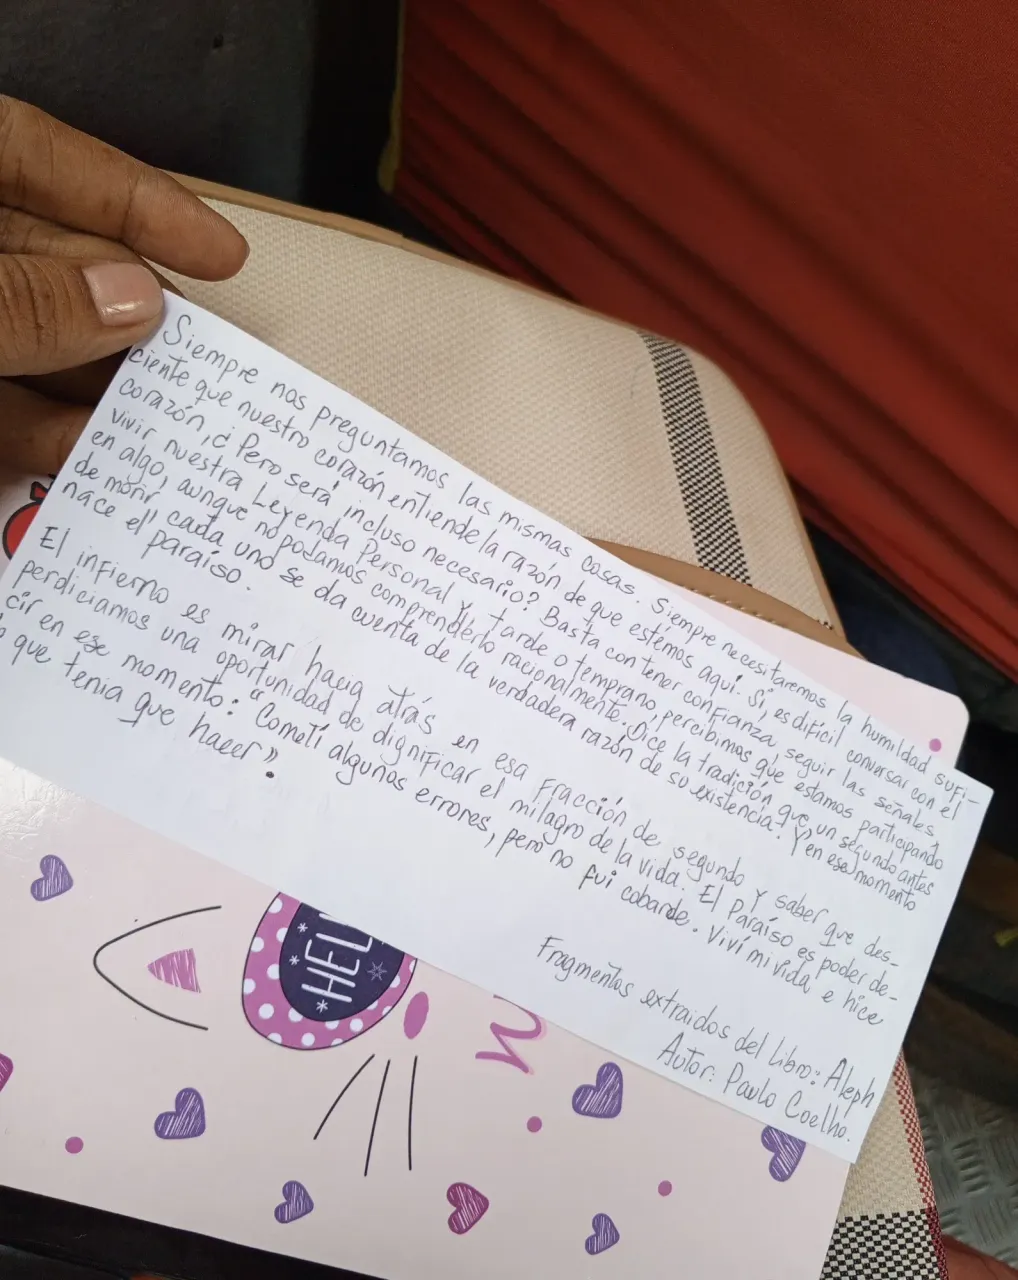 Siempre nos preguntamos las mismas cosas. Siempre necesitaremos la humildad sufi-
ciente que nuestro corazón entiende la razón de que estemos aquí. Sí, es difícil conversar con el
corazón, ¿Pero será incluso necesario? Basta con tener confianza, seguir las señales,
vivir nuestra Leyenda Personal y tarde o temprano, percibimos que estamos participando
en algo, aunque no podamos comprenderlo racionalmente. Dice la tradición que, un segundo antes
de morir cada uno se da cuenta de la verdadera razón de su existencia. Y en ese momento
nace el paraíso.
El infierno es mirar hacia atrás en esa fracción de segundo y saber que des-
perdiciamos una oportunidad de dignificar el milagro de la vida. El Paraíso es poder de-
cir en ese momento: "Cometí algunos errores, pero no fui cobarde. Viví mi vida e hice
lo que tenia que hacer".
Fragmentos extraidos del Libro: Aleph
Autor: Paulo Coelho.
HEL